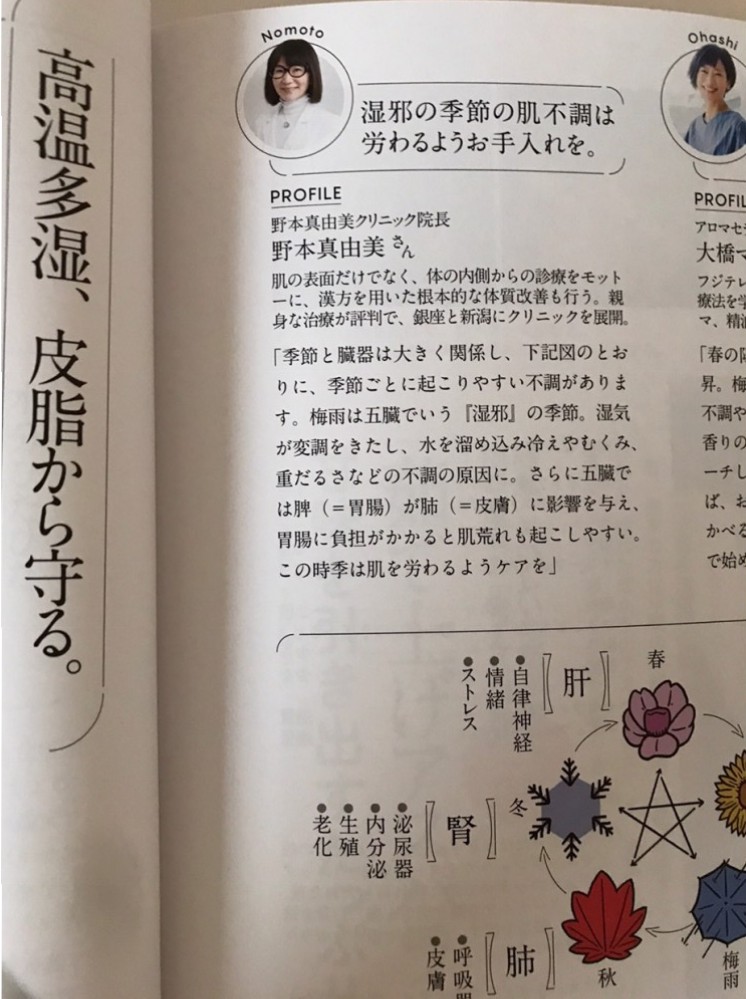 高温多湿、皮脂から守る。
Nomoto
湿邪の季節の肌不調は
労わるようお手入れを。
PROFILE
野本真由美クリニック院長
野本真由美さん
肌の表面だけでなく、体の内側からの診療をモット
ーに、漢方を用いた根本的な体質改善も行う。親
身な治療が評判で、銀座と新潟にクリニックを展開。
「季節と臓器は大きく関係し、下記図のとお
りに、季節ごとに起こりやすい不調がありま
す。梅雨は五臓でいう『湿邪』の季節。湿気
が変調をきたし、水を溜め込み冷えやむくみ、
重だるさなどの不調の原因に。さらに五臓で
は脾（＝胃腸）が肺（＝皮膚）に影響を与え、
胃腸に負担がかかると肌荒れも起こしやすい。
この時季は肌を労わるようケアを」
Ohashi
PROFIL
アロマセ
大橋マ
フジテレ
療法を学
マ、精油
「春の
昇。梅
不調や
香りの
ーチし
ば、お
かべる
で始め
春
肝
●自律神経
●情緒
●ストレス
冬
腎
●泌尿器
●内分泌
●生殖
●老化
梅雨
秋
肺
●呼吸器
●皮膚